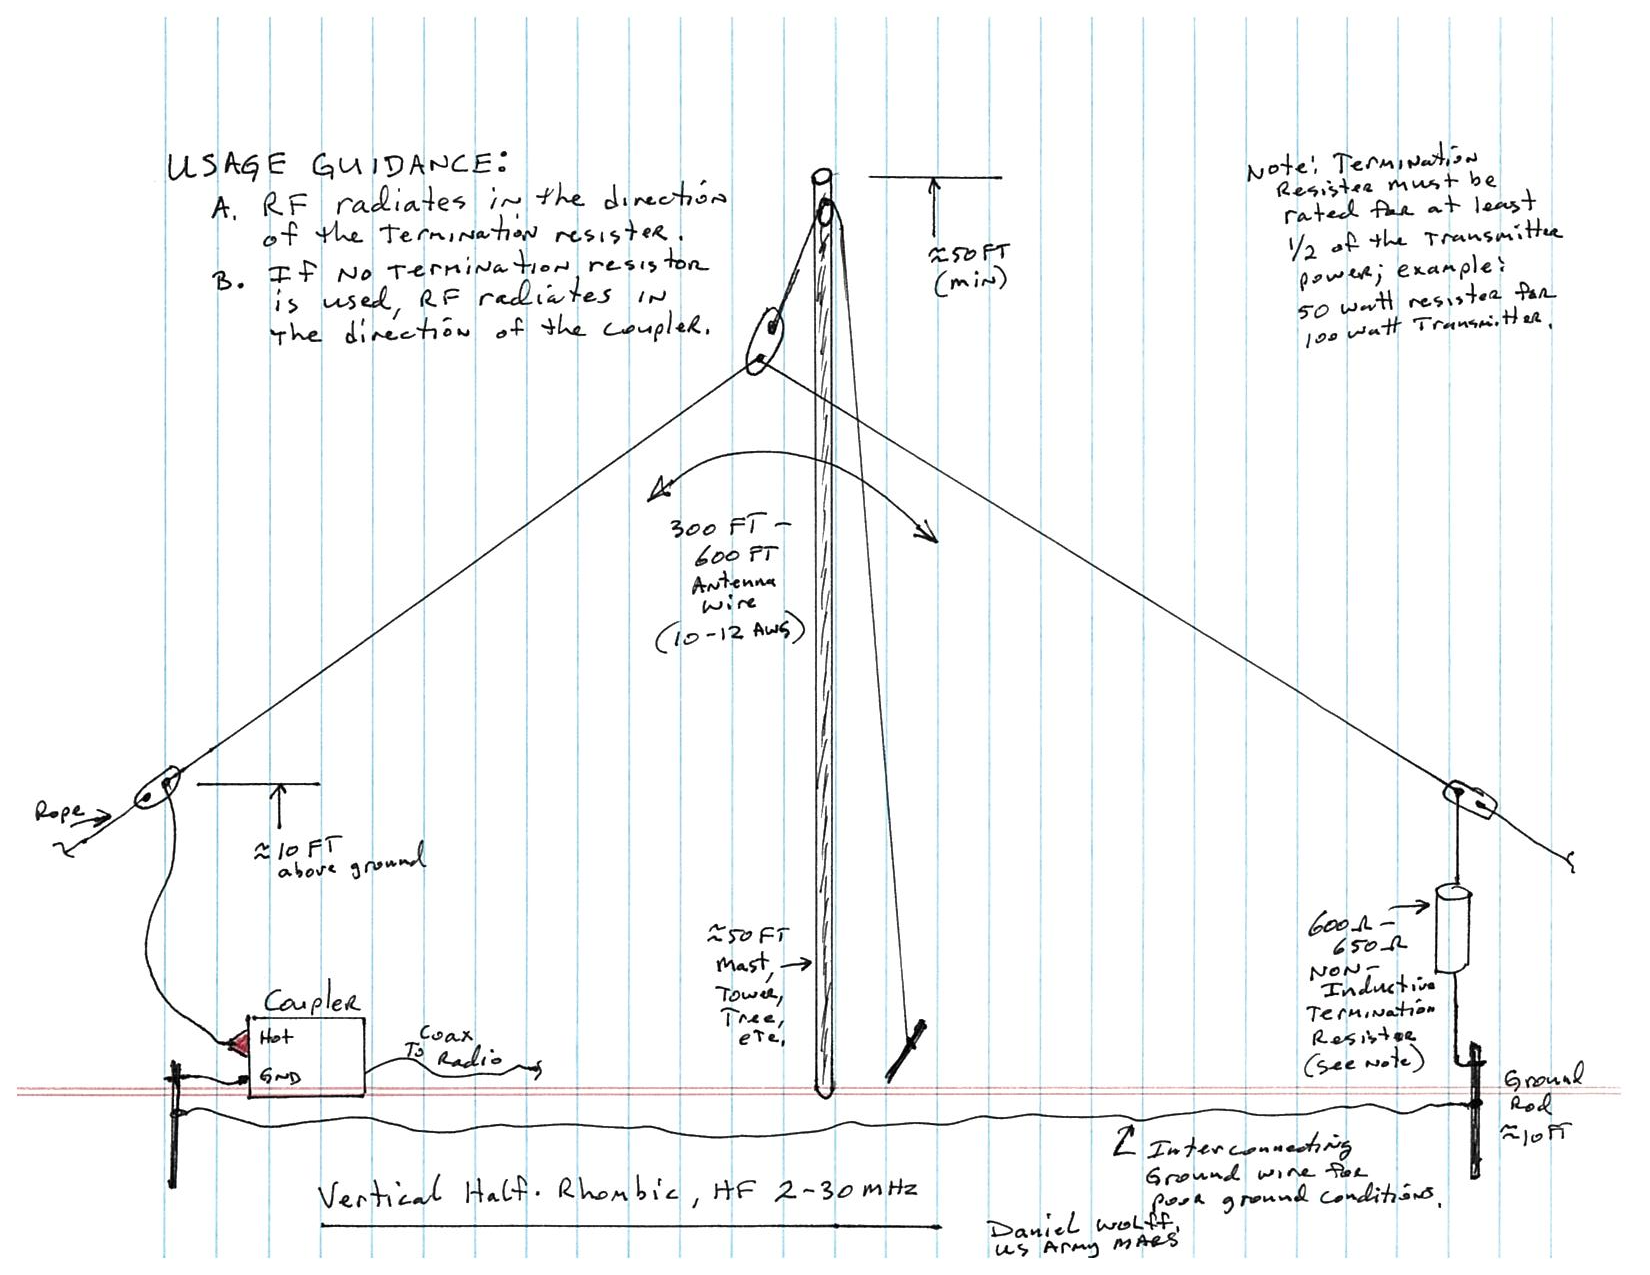 USAGE GUIDANCE:
A. RF radiates in the direction
of the Termination resister.
B. If No Termination resistor
is used, RF radiates in
the direction of the coupler.
Note: Termination
Resister must be
rated for at least
1/2 of the Transmitter
power; example:
50 watt resister for
100 watt Transmitter.
≈50 FT
(min)
300 FT -
600 FT
Antenna
wire
(10-12 AWG)
Rope
≈10 FT
above ground
≈50 FT
Mast,
Tower,
Tree,
etc.
600Ω -
650Ω
Non-
Inductive
Termination
Resister
(see Note)
Coupler
Hot
GND
Coax
To Radio
Ground
Rod
≈10 FT
Interconnecting
Ground wire for
poor ground conditions.
Vertical Half-Rhombic, HF 2-30 MHz
Daniel Wolff,
US Army MARS